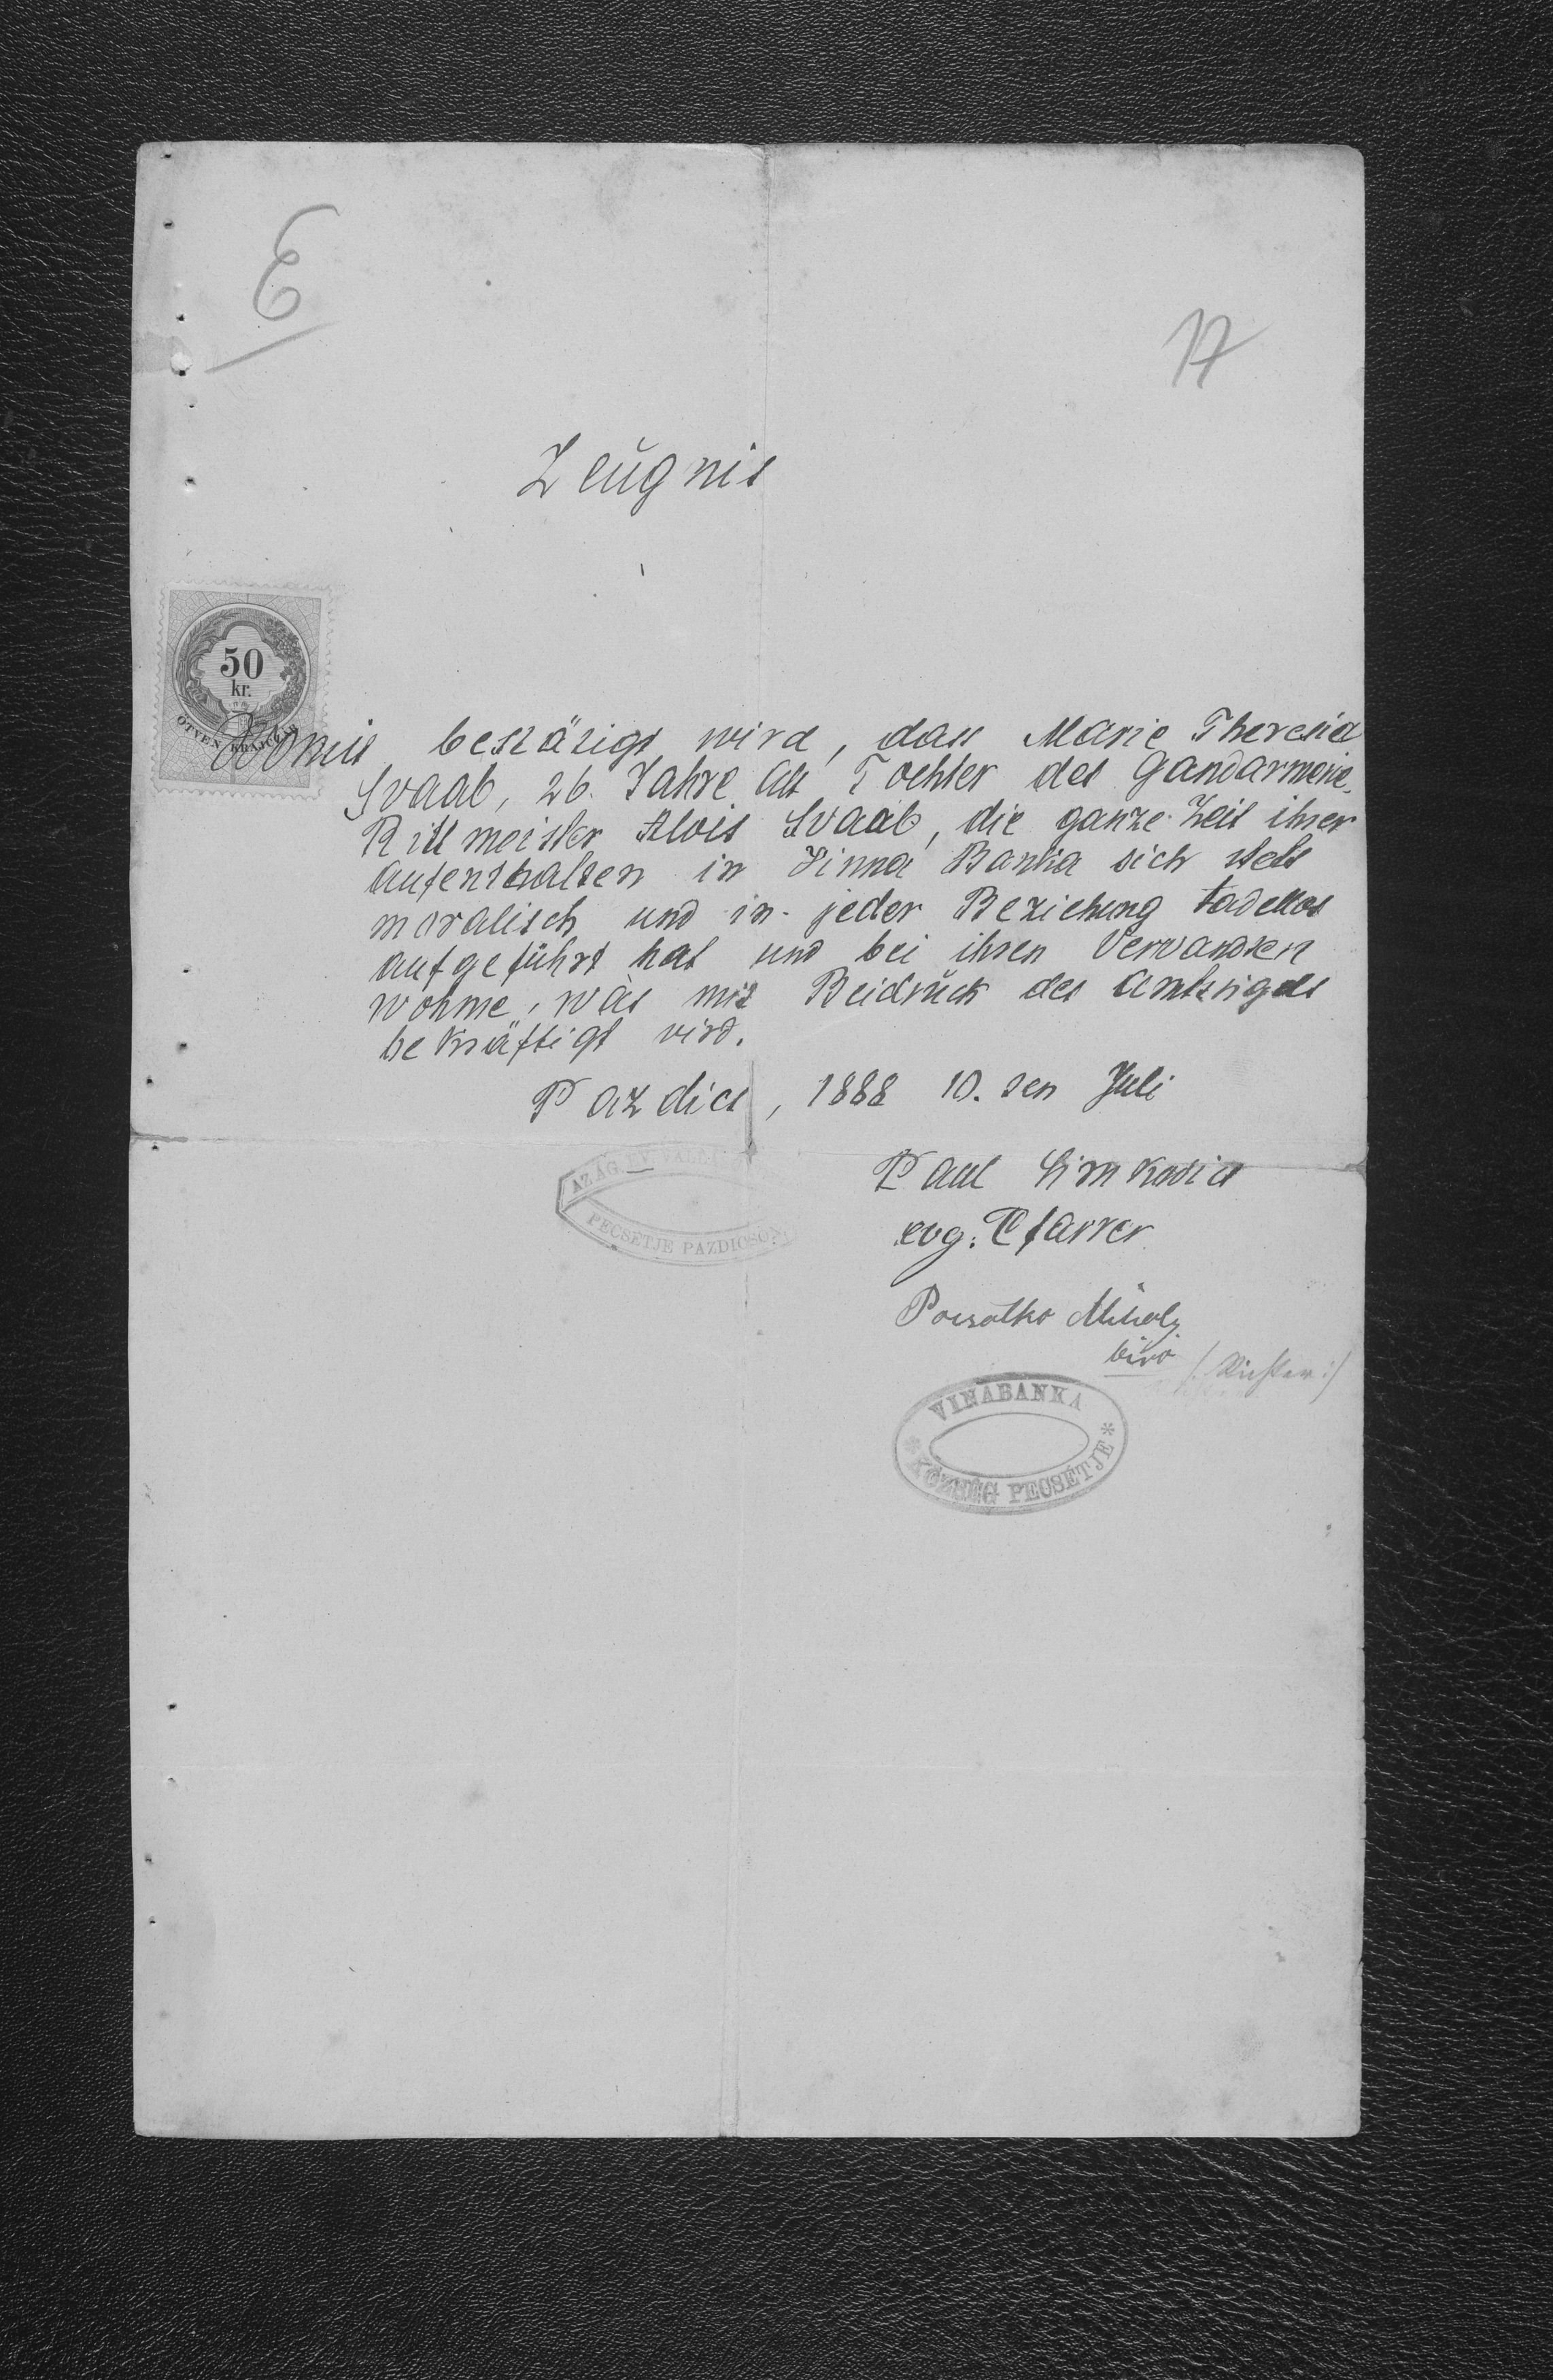 E
17
Zeugnis
50
kr.
ÖTVEN KRAJCZÁR
Womit bestätigt wird, dass Marie Theresia
Svaab, 26. Jahre alt Tochter des Gandarmerie-
Rittmeister Alois Svaab, die ganze Zeit ihrer
Aufenthalten in Vinna Banka sich stets
moralisch und in jeder Beziehung tadellos
aufgeführt hat und bei ihren Verwandten
wohnte, was mit Beidruck des Amtsigels
bekräftigt wird.
Pazdics, 1888 10. ten Juli
AZ ÁG. EV.
PECSÉTJE PAZDICSON
Paul Simkovics
evg. Pfarrer
Mihaly
biró (: Richter :)
VINABANKA
KÖZSÉG PECSÉTJE